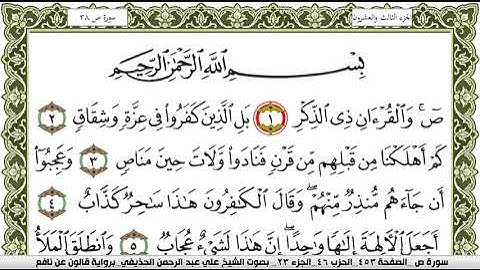 جزء الثالث والعشرون
سورة ص ٣٨
بِسْمِ اللَّهِ الرَّحْمَٰنِ الرَّحِيمِ
صٓ وَالْقُرْءَانِ ذِي الذِّكْرِ ١ بَلِ الَّذِينَ كَفَرُوا فِي عِزَّةٍ وَشِقَاقٍ ٢
كَمْ أَهْلَكْنَا مِن قَبْلِهِم مِّن قَرْنٍ فَنَادَوا وَّلَاتَ حِينَ مَنَاصٍ ٣ وَعَجِبُوٓا
أَن جَآءَهُم مُّنذِرٌ مِّنْهُمْ وَقَالَ الْكَٰفِرُونَ هَٰذَا سَٰحِرٌ كَذَّابٌ ٤
أَجَعَلَ الْآلِهَةَ إِلَٰهًا وَٰحِدًا إِنَّ هَٰذَا لَشَيْءٌ عُجَابٌ ٥ وَانطَلَقَ الْمَلَأُ
سورة ص _ الصفحة ٤٥٣_ الحزب ٤٦_ الجزء ٢٣_ بصوت الشيخ علي عبد الرحمن الحذيفي_ برواية قالون عن نافع